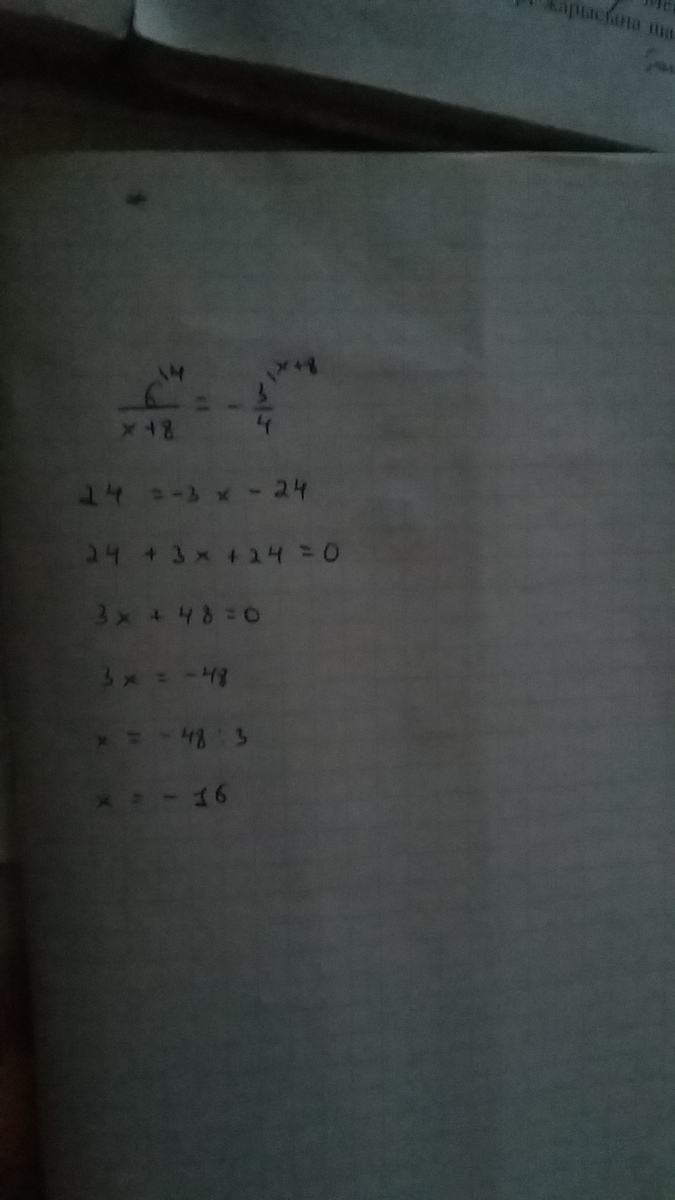 жарысына
6^\4 / x+8 = - 3^\x+8 / 4
24 = -3x - 24
24 + 3x + 24 = 0
3x + 48 = 0
3x = -48
x = -48 : 3
x = - 16